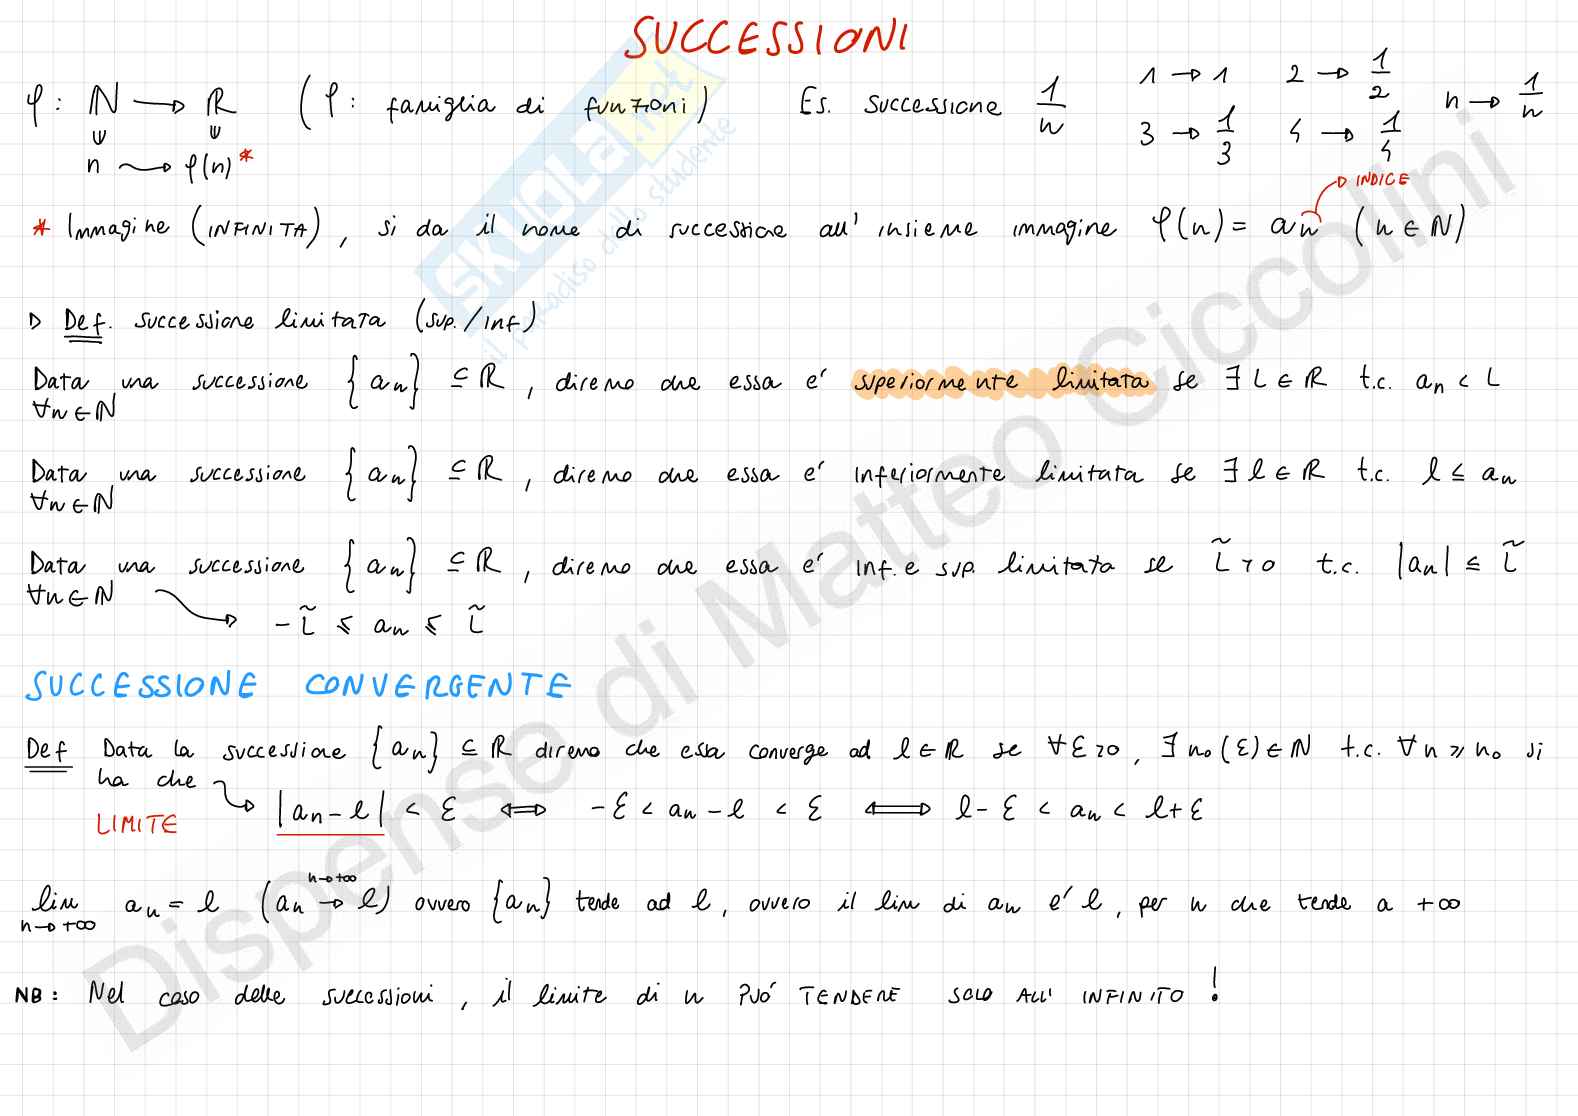 SUCCESSIONI
φ: ℕ → ℝ (φ: famiglia di funzioni) Es. successione 1/n 1 → 1 2 → 1/2 n → 1/n
n ⟿ φ(n)* 3 → 1/3 4 → 1/4
→ INDICE
* Immagine (INFINITA), si da il nome di successione all'insieme immagine φ(n) = an (n ∈ ℕ)
▷ Def. successione limitata (sup./inf)
Data una successione {an} ⊆ ℝ, diremo che essa e' superiormente limitata se ∃ L ∈ ℝ t.c. an < L
∀n ∈ ℕ
Data una successione {an} ⊆ ℝ, diremo che essa e' inferiormente limitata se ∃ l ∈ ℝ t.c. l ≤ an
∀n ∈ ℕ
Data una successione {an} ⊆ ℝ, diremo che essa e' inf. e sup. limitata se L̃ > 0 t.c. |an| ≤ L̃
∀n ∈ ℕ
→ -L̃ ≤ an ≤ L̃
SUCCESSIONE CONVERGENTE
Def Data la successione {an} ⊆ ℝ diremo che essa converge ad l ∈ ℝ se ∀ε > 0, ∃ n₀(ε) ∈ ℕ t.c. ∀n ≥ n₀ si
ha che
LIMITE |an - l| < ε ⟺ -ε < an - l < ε ⟺ l - ε < an < l + ε
lim n→+∞ an = l (an → l n→+∞) ovvero {an} tende ad l, ovvero il lim di an e' l, per n che tende a +∞
NB: Nel caso delle successioni, il limite di n PUÓ TENDERE SOLO ALL' INFINITO!
SKUOLA.net
il paradiso dello studente
Dispense di Matteo Ciccolini